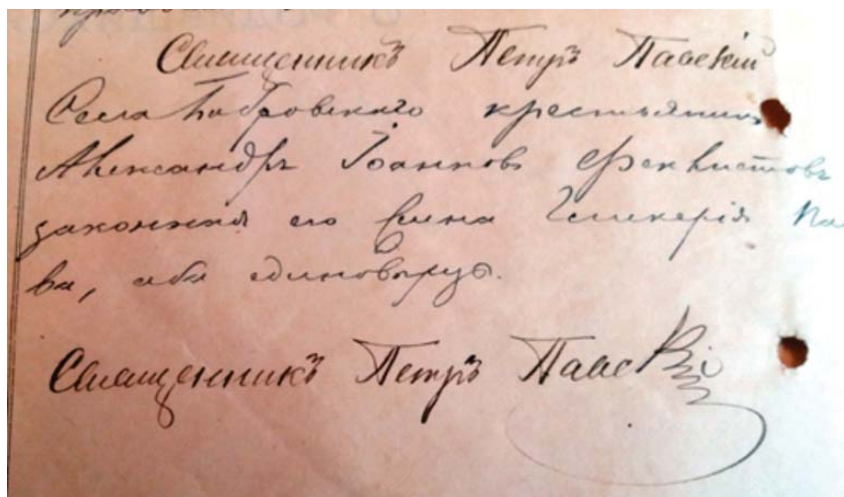 Священникъ Петръ Павскій
Села Бобровскаго крестьянинъ
Александръ Іоанновъ Феклистовъ
законная его жена Гликерія Па
ва, оба единовѣрцы.
Священникъ Петръ Павскій